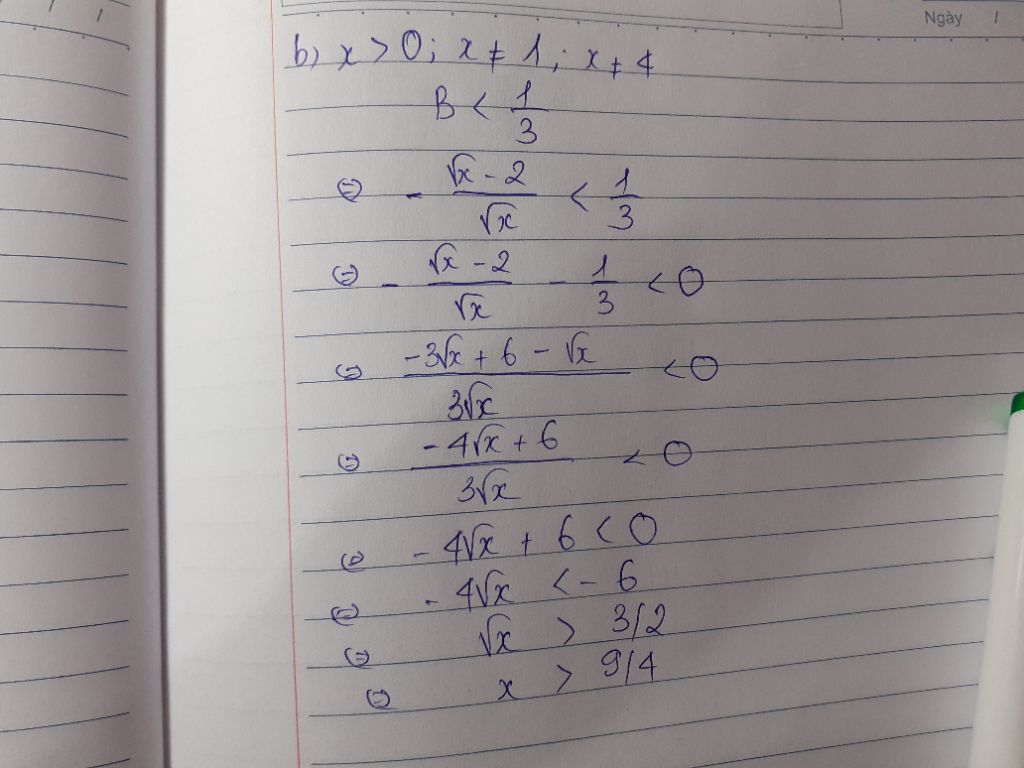 Ngày /
b) x > 0; x ≠ 1; x ≠ 4
B < 1/3
⇔ - (√x - 2)/√x < 1/3
⇔ - (√x - 2)/√x - 1/3 < 0
⇔ (-3√x + 6 - √x)/(3√x) < 0
⇔ (-4√x + 6)/(3√x) < 0
⇔ -4√x + 6 < 0
⇔ -4√x < -6
⇔ √x > 3/2
⇔ x > 9/4